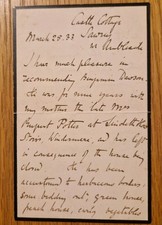 Castle Cottage
March 28. 33 Sawrey
nr Ambleside
I have much pleasure in
recommending Benjamin Dawson.
He was for some years with
my mother the late Mrs
Rupert Potter at Lindeth Howe
Storrs Windermere, and has left
in consequence of the house being
closed He has been
accustomed to herbaceous borders,
some bedding out, green house,
peach house, early vegetables